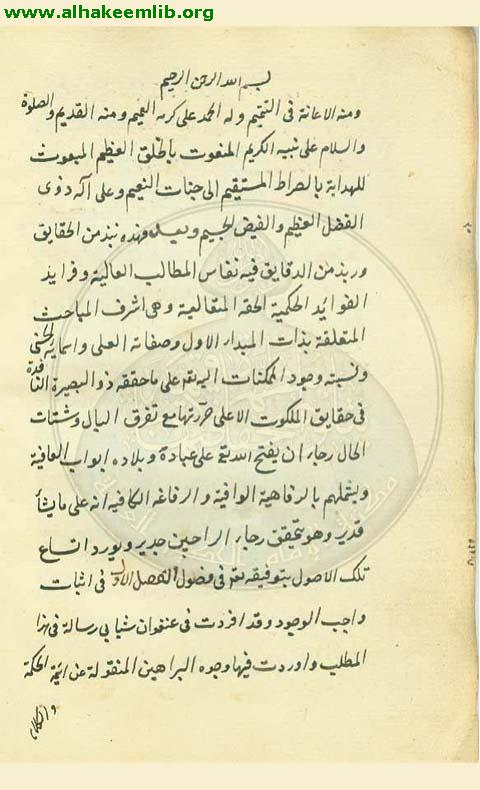 www.alhakeemlib.org
بسم الله الرحمن الرحيم
ومنه الاعانة فى التتميم وله الحمد على كرمه العميم ومنه القديم والصلوة
والسلام على نبيه الكريم المنعوت بالخلق العظيم المبعوث
للهداية بالصراط المستقيم الى جنات النعيم وعلى آله ذوى
الفضل العظيم والفيض الجسيم وبعد فهذه نبذ من الحقايق
وربذ من الدقايق فيه نفايس المطالب العالية وفرايد
الفوايد الحكمية الحقة المتعالية وهى اشرف المباحث
المتعلقة بذات المبدء الاول وصفاته العلى واسمايه الحسنى
ونسبته وجود الممكنات اليه تعه على ما حققه ذو البصيرة النافذة
فى حقايق الملكوت الاعلى حررتها مع تفرق البال وشتات
الحال رجاء ان يفتح الله تع على عباده وبلاده ابواب العافية
ويشملهم بالرفاهية الوافية والرفاغة الكافيه انه على ما يشأ
قدير وهو بتحقق رجاء الراجين جدير ويورد اتساع
تلك الاصول بتوفيقه تعه فى فصول الفصل الاول فى اثبات
واجب الوجود وقد افردت فى عنفوان شبابى رسالة فى هذا
المطلب واوردت فيها وجوه البراهين المنقولة عن ائمة الحكمة
والكلام